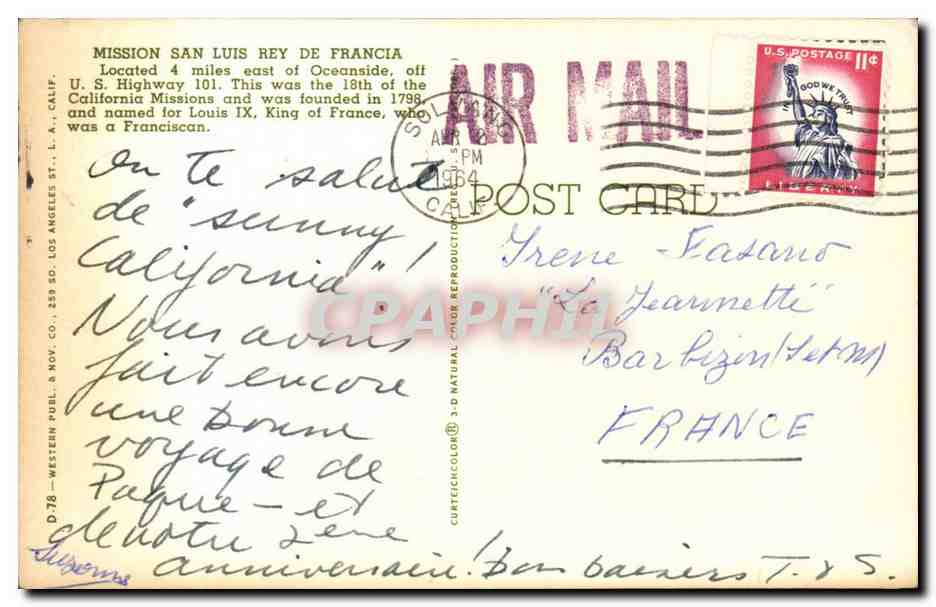 MISSION SAN LUIS REY DE FRANCIA
Located 4 miles east of Oceanside, off
U. S. Highway 101. This was the 18th of the
California Missions and was founded in 1798
and named for Louis IX, King of France, who
was a Franciscan.
On te salue
de "sunny
California"!
Nous avons
fait encore
une bonne
voyage de
Paque - et
de notre 2ème
anniversaire! Bons baisers T. & S.
Suzanne
D-78 — WESTERN PUBL. & NOV. CO., 259 SO. LOS ANGELES ST., L. A., CALIF.
CURTEICHCOLOR® 3-D NATURAL COLOR REPRODUCTION
AIR MAIL
SOLVANG
APR
PM
1964
CALIF
U.S. POSTAGE 11¢
IN GOD WE TRUST
LIBERTY
POST CARD
Irene Fasano
"La Jeannette"
Barbizon (S et M)
FRANCE
CPAPHIL